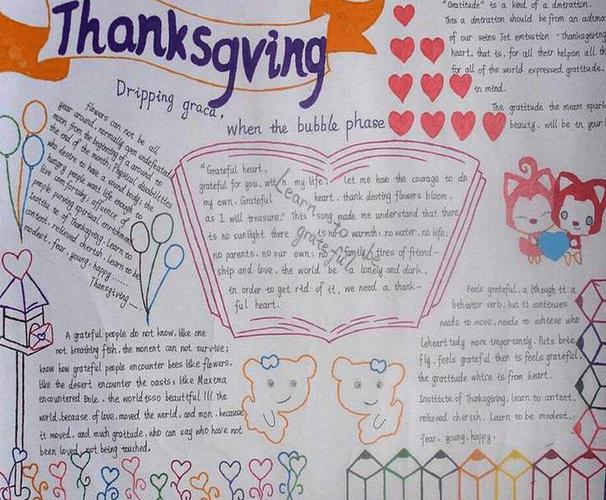 Thanksgiving
Dripping graca,
when the bubble phase
"Gratitude" is a kind of a dmtration.
This a dmtration should be from an
of our veins Jet emtsstion "Thanksgiving
heart. that is, for all their helpon all the
for all of the world expressed gratitude.
in mind.
The gratitude the meam spark
beauty. will be in your
flowers can not be all
year around, normally open undefeated
moon, from the beginning of a around to
the end of the month; Physical disabilities
who desire to have a sound body; the
hungry people want life enough to
live comfortably; affluence of
people nerving spiritual enrichment
Institute of Thanksgiving. Learn to
content, relieved cherish. Learn to be
modest, fear, young, happy ......
Thanksgiving—
"Grateful heart,
grateful for you, with my life, let me have the courage to do
my own. Grateful heart. thank destiny flowers bloom,
as I will treasure." This song made me understand that there
is no sunlight there is no warmth; no water, no life;
no parents, no our own, no family tires of friend-
ship and love. the world be a lonely and dark.
in order to get rid of it, we need a thank-
ful heart.
Learn to be
grateful
A grateful people do not know. like one
not breathing fish, the monent can not survive;
know how grateful people encounter bees like flowers,
like the desert encounter the oasts, like Maxtma
encountered Bole, the world is so beautiful !!! The
world, because of love, moved the world, and mon, because
it moved, and much gratitude, who can say who have not
been loved, not being touched.
Feels grateful, a lthough it a
behavior verb, but it continues
needs to move, needs to achieve who
leheart tedly more importantly. Puts brie
fly, feels grateful then is feels grateful,
the gratttude whtce is from heart.
Institute of Thanksgiving, learn to content,
relieved cherish. Learn to be modest,
fear, young, happy.